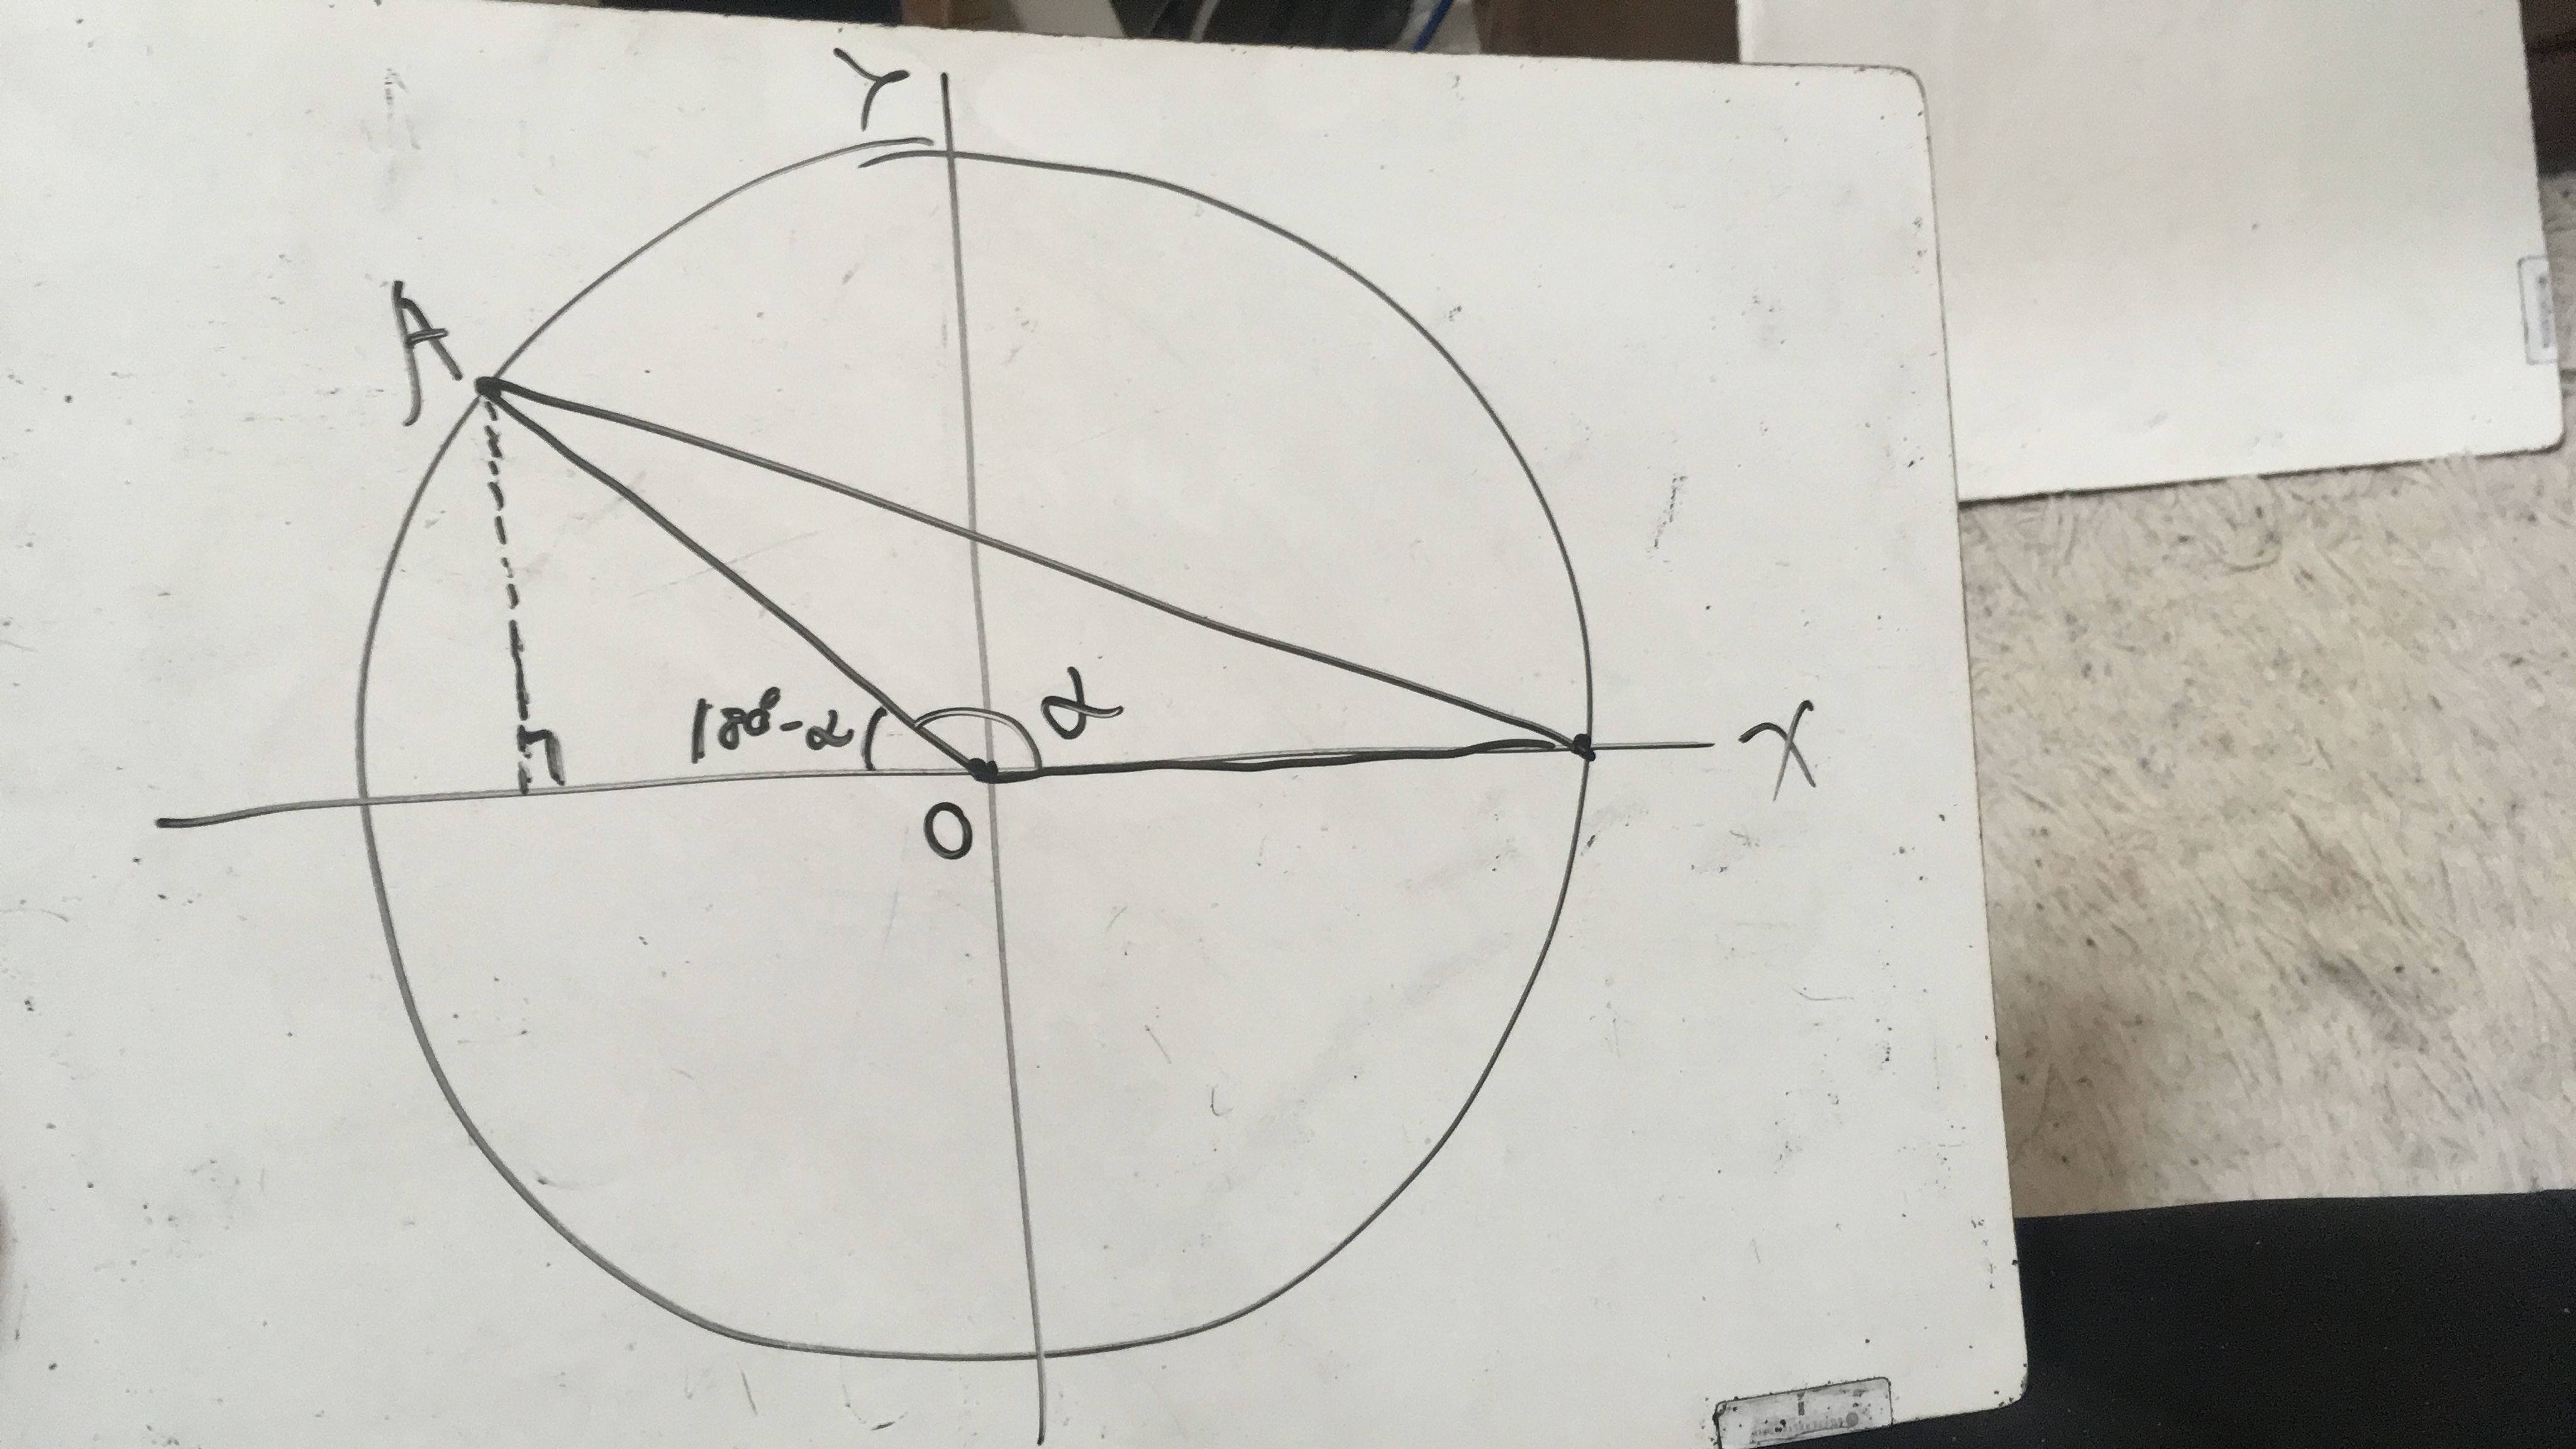 Y
A
180°-α
α
X
O